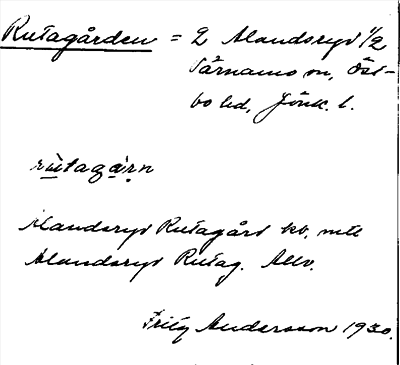 Rutagården = 2 Alandsryd 1/2
Värnamo sn, Öst-
bo hd, Jönk. l.
rùtagàṛn
Alandsryd Rutagård kv. mtl
Alandsryd Rutag. Allv.
Fritz Andersson 1930.